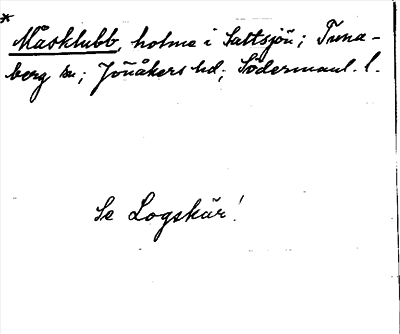 * Måsklubb, holme i Saltsjön; Tuna-
berg sn; Jönåkers hd; Södermanl. l.
Se Logskär!